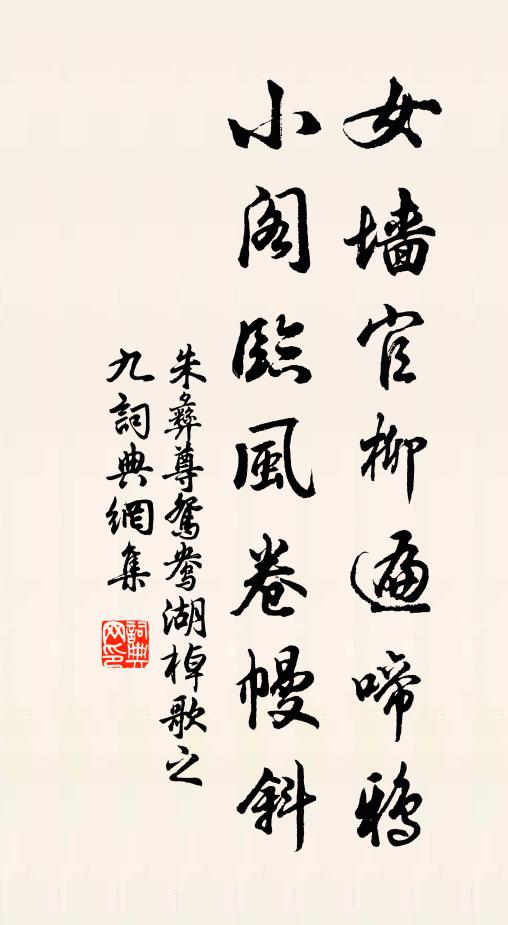 女墻官柳遍啼鴉
小閣臨風卷幔斜
朱彝尊鴛鴦湖棹歌之
九詞典網集
詞典
网印